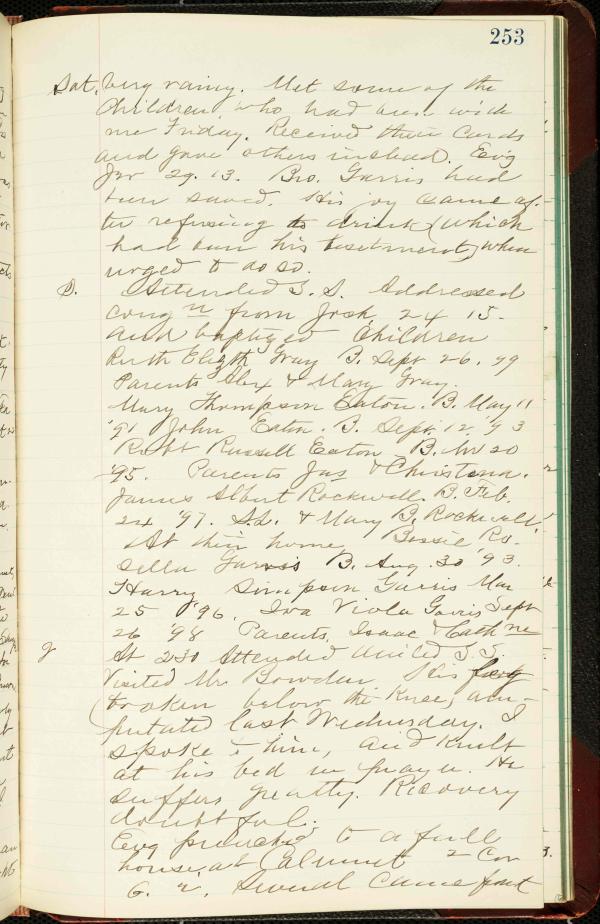 253
Sat. very rainy. Met some of the
Children who had been with
me Friday. Received their Cards
and gave others instead. Ev'g
Jer 29. 13. Bro. Garris had
been saved. His joy came af-
ter refusing to drink (which
had been his besetment) when
urged to do so.
S. Attended S. S. Addressed
cong'n from Josh. 24 15.
and baptized Children
Ruth Elizth Gray B. Sept 26. 99
Parents Alex & Mary Gray.
Mary Thompson Eaton. B. May 11
'91 John Eaton. B. Sept. 12. '93
Robt Russell Eaton B. Nov 20
'95. Parents Jas & Christena.
James Albert Rockwell. B. Feb.
24 '97. S.L. & Mary B. Rockwell.
At their home Bessie Ro-
sella Garris B. Aug. 30 '93.
Harry Simpson Garris Mar
25 '96. Iva Viola Garris Sept
26 '98 Parents, Isaac & Cathne
At 230 Attended United S.S.
Visited Mr Bowden. His leg
(broken below the knee) am-
putated last Wednesday. I
spoke to him, and knelt
at his bed in prayer. He
suffers greatly. Recovery
doubtful.
Evg preached to a full
house at Calumet 2 Cor
6. 2. Several came for